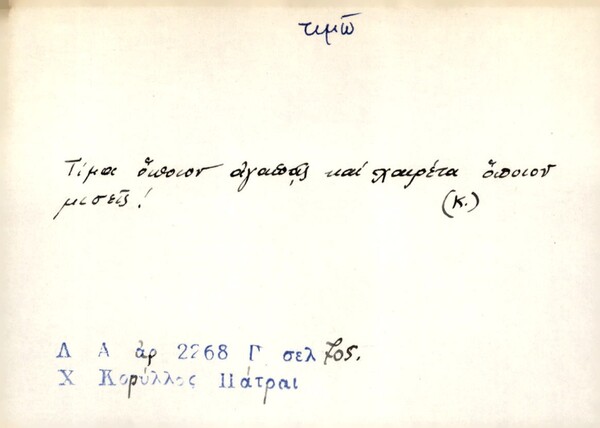 τιμῶ
Τίμα ὅποιον ἀγαπᾷς καί χαιρέτα ὅποιον
μισεῖς!
(Κ.)
Λ Α ἀρ 2268 Γ σελ 705.
Χ Κορύλλος Πάτραι